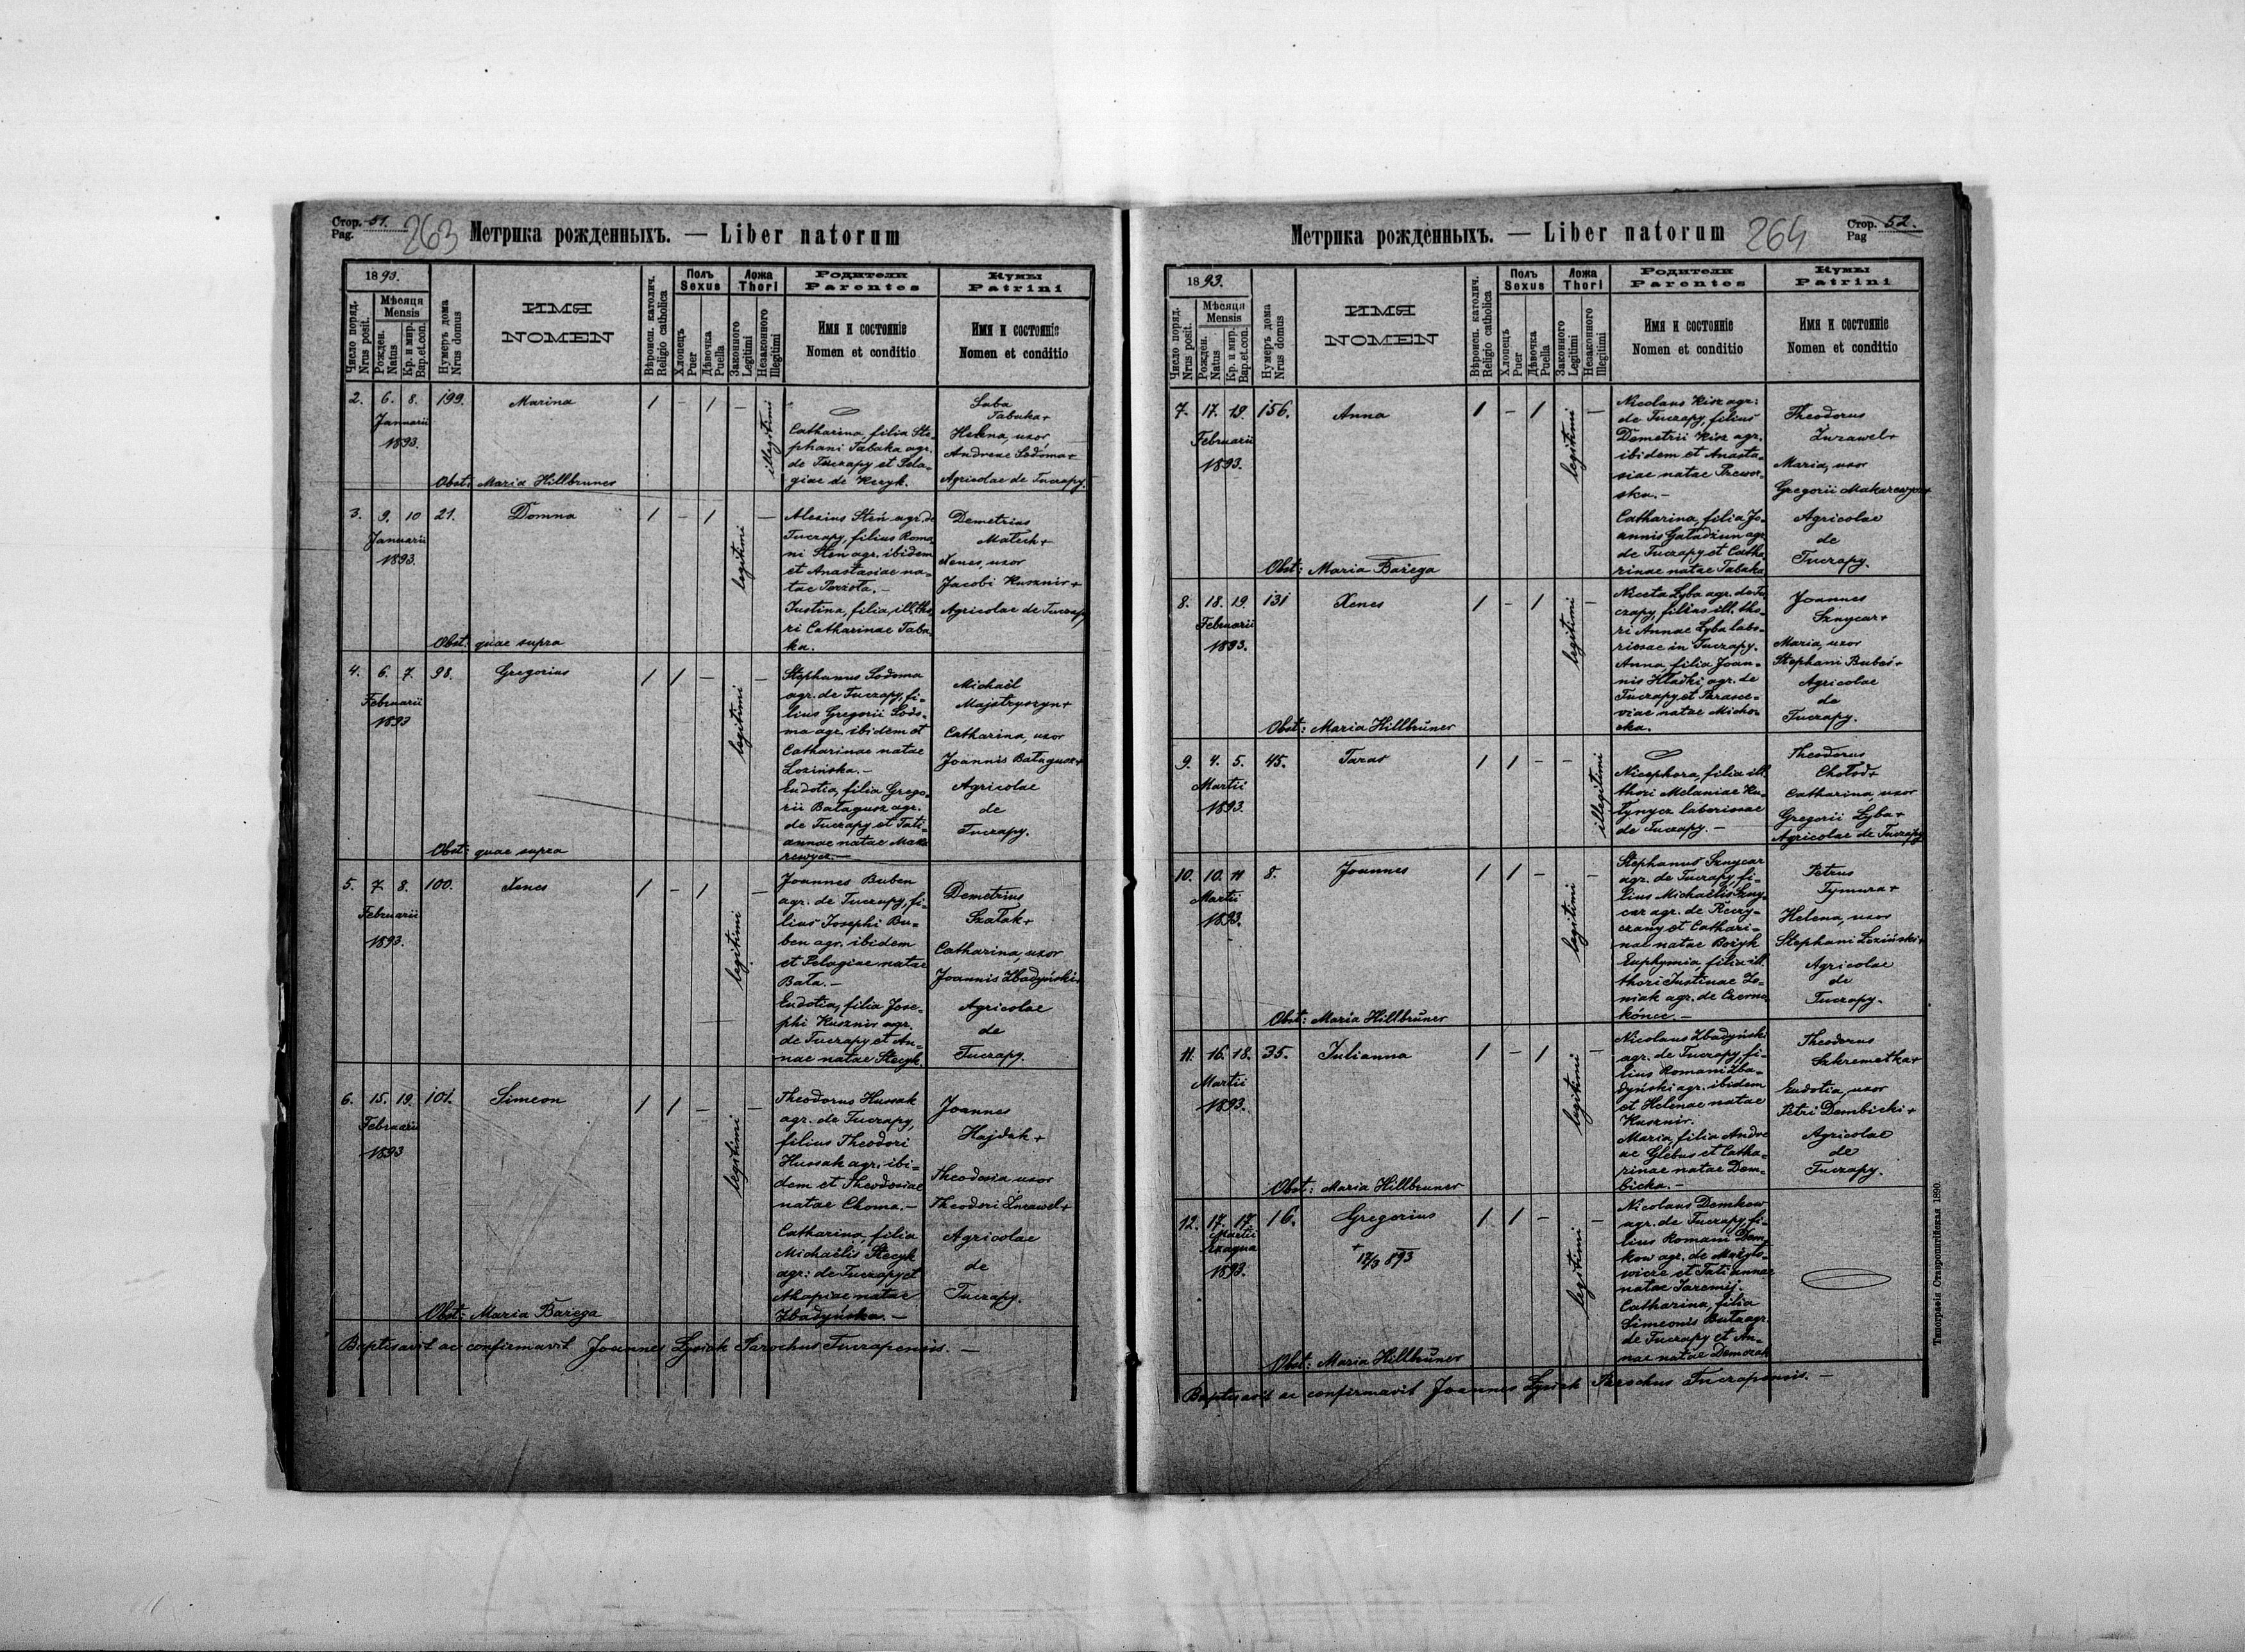 Стор. 51.
Pag.
263
Метрика рожденныхъ. — Liber natorum
1893.
Число поряд.
Nrus posit.
Мѣсяця
Mensis
Рожден.
Natus
Кр. и мир.
Bap.et.con.
Нумеръ дома
Nrus domus
ИМЯ
NOMEN
Вѣроисп. католич.
Religio catholica
Полъ
Sexus
Хлопецъ
Puer
Дѣвочка
Puella
Ложа
Thori
Законного
Legitimi
Незаконного
Illegitimi
Родители
Parentes
Имя и состоянiе
Nomen et conditio
Кумы
Patrini
Имя и состоянiе
Nomen et conditio
2. 6. 8. 199. Marina / - / - illegitimi
Januarii
1893.
Catharina, filia Ste-
phani Tabaka agr.
de Tuczapy et Pela-
giae de Keryk.
Saba
Tabaka+
Helena, uxor
Andreae Sodoma+
Agricolae de Tuczapy.
Obst: Maria Hillbruner
3. 9. 10 21. Domna / - / legitimi -
Januarii
1893.
Alexius Steń agr. de
Tuczapy, filius Roma
ni Sten agr. ibidem
et Anastasiae na-
tae Porzota. -
Justina, filia, ill. tho
ri Catharinae Taba
ka.
Demetrius
Matech+
Xenes, uxor
Jacobi Kusznir+
Agricolae de Tuczapy
Obst: quae supra
4. 6. 7. 98. Gregorius / / - legitimi -
Februarii
1893
Stephanus Sodoma
agr. de Tuczapy, fi-
lius Gregorii Sodo-
ma agr. ibidem et
Catharinae natae
Lozińska. -
Eudotia, filia Grego-
rii Bałagusz agr.
de Tuczapy et Tati-
annae natae Maka
rewycz. -
Michaël
Majstryszyn+
Catharina uxor
Joannis Bałagusz+
Agricolae
de
Tuczapy.
Obst: quae supra
5. 7. 8. 100. Xenes / - / legitimi -
Februarii
1893.
Joannes Buben
agr. de Tuczapy, fi-
lius Josephi Bu-
ben agr. ibidem
et Pelagiae natae
Bała. -
Eudotia, filia Jose-
phi Kusznir agr.
de Tuczapy et An-
nae natae Stecyk.
Demetrius
Szałak+
Catharina, uxor
Joannis Zbadyński+
Agricolae
de
Tuczapy.
6. 15. 19. 101. Simeon / / - legitimi -
Februarii
1893
Theodorus Hussak
agr. de Tuczapy,
filius Theodori
Hussak agr. ibi-
dem et Theodosiae
natae Choma. -
Catharina, filia
Michaëlis Stecyk
agr: de Tuczapy et
Ahapiae natae
Zbadyńska. -
Joannes
Hajdak+
Theodosia uxor
Theodori Żurawel+
Agricolae
de
Tuczapy.
Obst: Maria Barega
Baptisavit ac confirmavit Joannes Łysiak Parochus Tuczapensis. -
Метрика рожденныхъ. — Liber natorum
264
Стор. 52.
Pag
1893.
Число поряд.
Nrus posit.
Мѣсяця
Mensis
Рожден.
Natus
Кр. и мир.
Bap.et.con.
Нумеръ дома
Nrus domus
ИМЯ
NOMEN
Вѣроисп. католич.
Religio catholica
Полъ
Sexus
Хлопецъ
Puer
Дѣвочка
Puella
Ложа
Thori
Законного
Legitimi
Незаконного
Illegitimi
Родители
Parentes
Имя и состоянiе
Nomen et conditio
Кумы
Patrini
Имя и состоянiе
Nomen et conditio
7. 17. 19. 156. Anna / - / legitimi -
Februarii
1893.
Nicolaus Kisz agr:
de Tuczapy, filius
Demetrii Kisz agr.
ibidem et Anasta-
siae natae Przewor-
ska. -
Catharina, filia Jo-
annis Gaładziun agr
de Tuczapy et Catha
rinae natae Tabaka
Theodorus
Żurawel+
Maria, uxor
Gregorii Makarewycz+
Agricolae
de
Tuczapy.
Obst: Maria Barega
8. 18. 19. 131 Xenes / - / legitimi -
Februarii
1893.
Niceta Łyba agr. de Tu
czapy, filius ill. tho-
ri Annae Łyba labo-
rissae in Tuczapy.
Anna, filia Joan-
nis Hładki agr. de
Tuczapy et Parasce-
viae natae Micho-
ska.
Joannes
Sznycar+
Maria, uxor
Stephani Buben+
Agricolae
de
Tuczapy.
Obst: Maria Hillbrüner
9. 4. 5. 45. Taras / / - - illegitimi
Martii
1893.
Nicephora, filia ill.
thori Melaniae Ku-
łynycz laborissae
de Tuczapy. -
Theodorus
Chołod+
Catharina, uxor
Gregorii Łyba+
Agricolae de Tuczapy
10. 10. 11 8. Joannes / / - legitimi -
Martii
1893.
Stephanus Sznycar
agr. de Tuczapy, fi-
lius Michaëlis Szny-
car agr. de Reczy-
czany et Cathari-
nae natae Bożyk
Euphymia, filia ill.
thori Justinae Zo-
niak agr. de Czerno
kónce. -
Petrus
Tymura+
Helena, uxor
Stephani Łoziński+
Agricolae
de
Tuczapy.
Obst: Maria Hillbrüner
11. 16. 18. 35. Julianna / - / legitimi -
Martii
1893.
Nicolaus Zbadyński
agr. de Tuczapy, fi-
lius Romani Zba-
dyński agr. ibidem
et Helenae natae
Kusznir.
Maria, filia Andre
ae Glebus et Catha-
rinae natae Dem-
bicka. -
Theodorus
Szkremetka+
Eudotia, uxor
Petri Dembicki+
Agricolae
de
Tuczapy.
Obst: Maria Hillbruner
12. 17. 17. 16. Gregorius / / - legitimi -
Martii
1893.
+ 17/3 893
Nicolaus Demkow
agr. de Tuczapy, fi-
lius Romani Dem-
kow agr. de
et Tatiannae
natae Jaremij.
Catharina, filia
Simeonis Buta agr.
de Tuczapy et An-
nae natae Demczak
Obst: Maria Hillbrüner
Baptisavit ac confirmavit Joannes Łysiak Parochus Tuczapensis. -
Типографiя Ставропигiйская 1890.